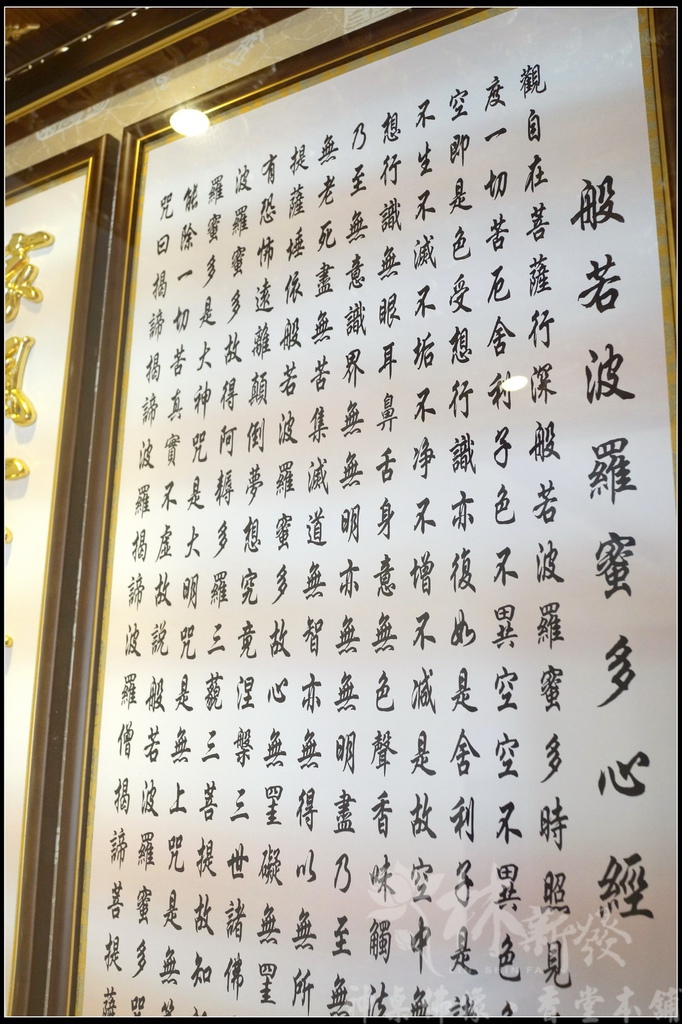 般若波羅蜜多心經
觀自在菩薩行深般若波羅蜜多時照見
度一切苦厄舍利子色不異空空不異色
空即是色受想行識亦復如是舍利子是諸
不生不滅不垢不净不增不减是故空中無
想行識無眼耳鼻舌身意無色聲香味觸法
乃至無意識界無無明亦無無明盡乃至無
無老死盡無苦集滅道無智亦無得以無所
提薩埵依般若波羅蜜多故心無罣礙無罣
有恐怖遠離顛倒夢想究竟涅槃三世諸佛
波羅蜜多故得阿耨多羅三藐三菩提故知
羅蜜多是大神咒是大明咒是無上咒是無
能除一切苦真實不虛故說般若波羅蜜多咒
咒曰揭諦揭諦波羅揭諦波羅僧揭諦菩提薩
林新發
神桌佛像 香堂本舖